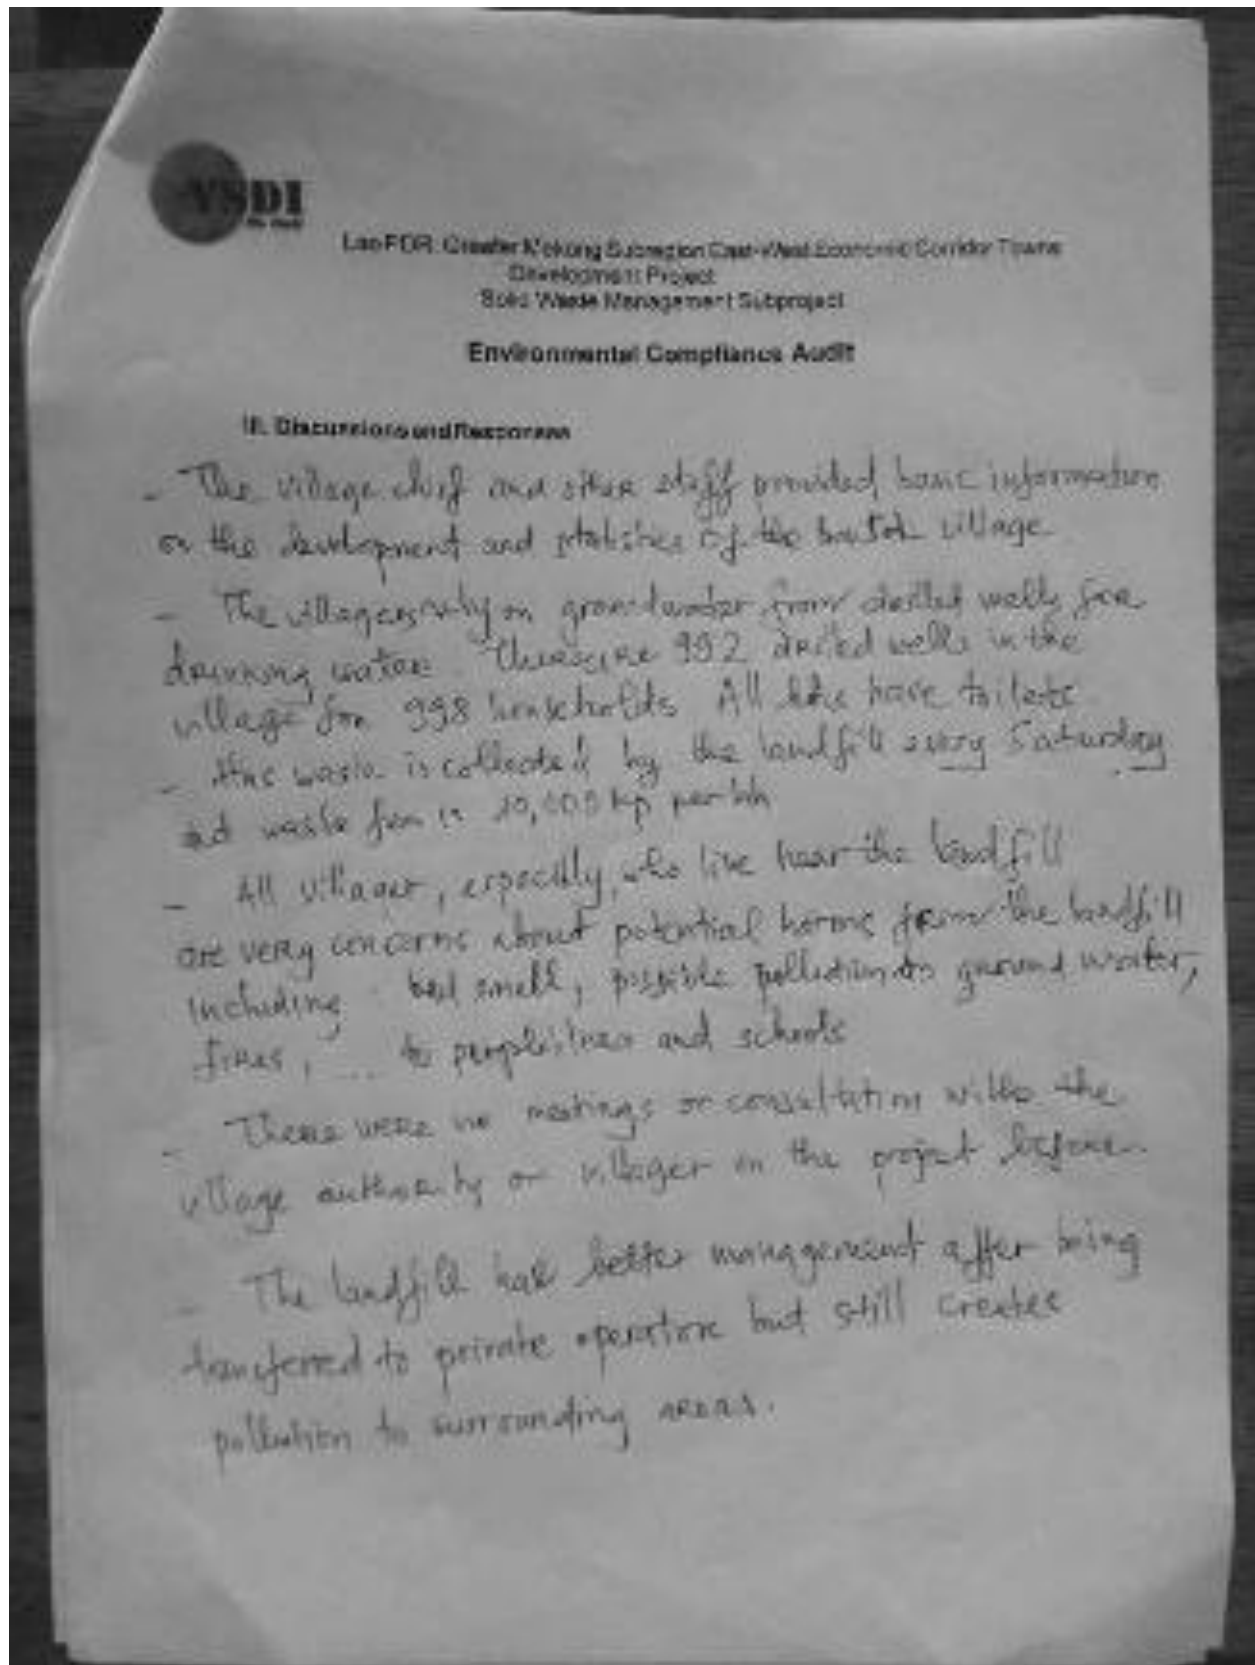 VSDI
Lao PDR: Greater Mekong Subregion East-West Economic Corridor Towns
Development Project
Solid Waste Management Subproject
Environmental Compliance Audit
III. Discussions and Responses
- The village chief and other staff provided basic information
on the development and statistics of the village
- The villagers rely on groundwater from drilled wells for
drinking water. There are 992 drilled wells in the
village for 998 households. All have toilets
- waste is collected by the landfill every Saturday
waste is per hh
- All villager, especially, who live near the landfill
are very concerns about potential harms from the landfill
including bad smell, possible pollution to ground water,
fires, ... to and schools
- There were no meetings or consultation with the
village authority or villager on the project before.
- The landfill has better management after being
transferred to private operator but still creates
pollution to surrounding areas.